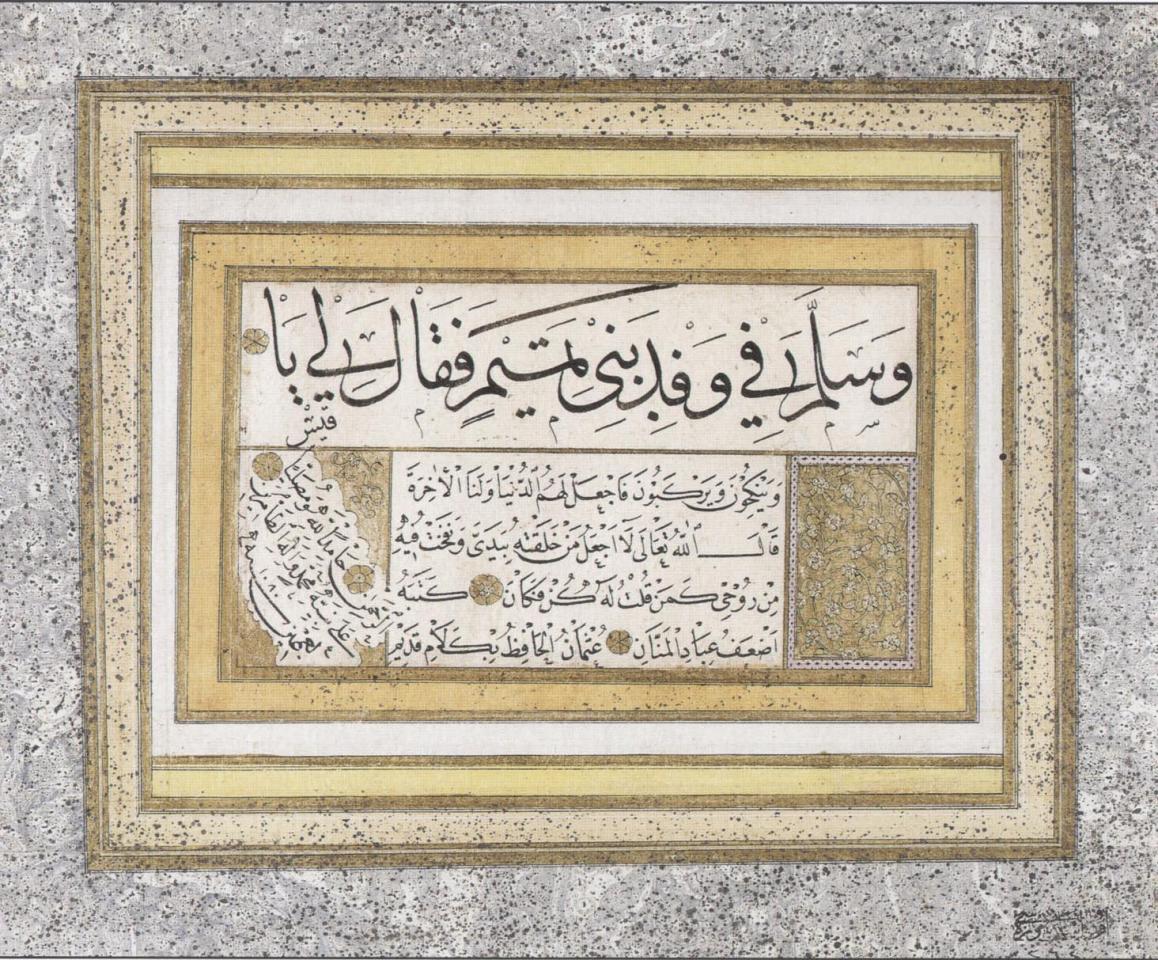 وَسَلَّمَ فِي وَفْدِ بَنِي تَمِيمٍ فَقَالَ لِي يَا
قَيْسُ
وَيَنْكِحُونَ وَيَرْكَبُونَ فَاجْعَلْ لَهُمُ الدُّنْيَا وَلَنَا الْآخِرَةَ
قَالَ اللّٰهُ تَعَالَى لَا اَجْعَلُ مَنْ خَلَقْتُهُ بِيَدَيَّ وَنَفَخْتُ فِيهِ
مِنْ رُوحِي كَمَنْ قُلْتُ لَهُ كُنْ فَكَانَ كَتَبَهُ
اَضْعَفُ عِبَادِ الْمَنَّانِ عُثْمَانُ الْحَافِظُ بِكَلَامِ قَدِيمٍ
حَامِدًا لِلّٰهِ وَمُصَلِّيًا
عَلَى نَبِيِّهِ مُحَمَّدٍ وَآلِهِ